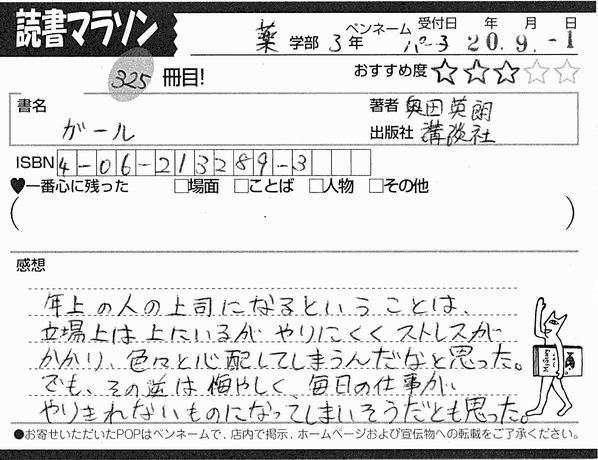 読書マラソン
薬 学部 3年 ペンネーム パーヨ 受付日 年 月 日 20.9.-1
325 冊目! おすすめ度 ☆☆☆☆☆
書名 ガール
著者 奥田英朗
出版社 講談社
ISBN 4-06-213289-3
♥一番心に残った □場面 □ことば □人物 □その他
( )
感想
年上の人の上司になるということは、
立場上は上にいるが やりにくく ストレスが
かかり、色々と心配してしまうんだなと思った。
でも、その逆は悔やしく、毎日の仕事が、
やりきれないものになってしまいそうだとも思った。
●お寄せいただいたPOPはペンネームで、店内で掲示、ホームページおよび宣伝物への転載をご了承ください。